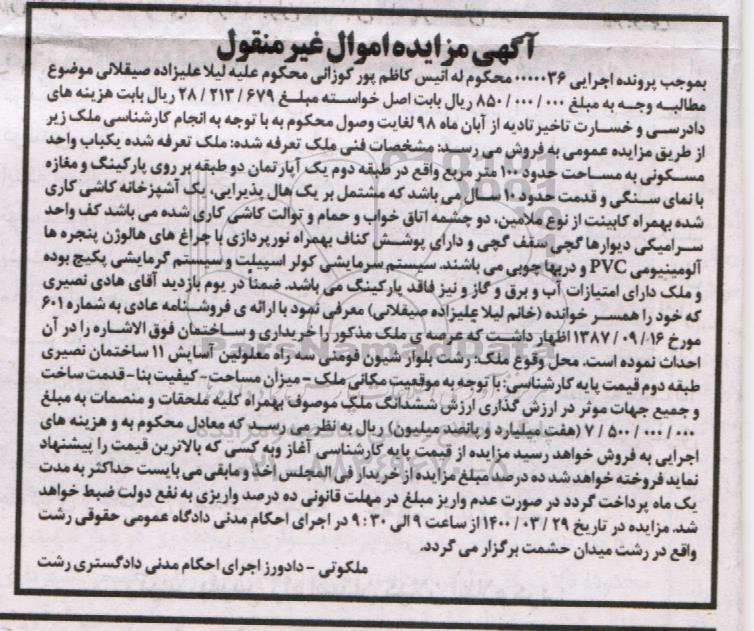 آگهی مزایده اموال غیر منقول
بموجب پرونده اجرایی ۰۰۰۰۰۳۶ محکوم له انیس کاظم پور کوزانی محکوم علیه لیلا علیزاده صیقلانی موضوع
مطالبه وجه به مبلغ ۸۵۰/۰۰۰/۰۰۰ ریال بابت اصل خواسته مبلغ ۲۸/۲۱۳/۶۷۹ ریال بابت هزینه های
دادرسی و خسارت تاخیر تادیه از آبان ماه ۹۸ لغایت وصول محکوم به با توجه به انجام کارشناسی ملک زیر
از طریق مزایده عمومی به فروش می رسد: مشخصات فنی ملک تعرفه شده: ملک تعرفه شده یکباب واحد
مسکونی به مساحت حدود ۱۰۰ متر مربع واقع در طبقه دوم یک آپارتمان دو طبقه بر روی پارکینگ و مغازه
با نمای سنگی و قدمت حدود ۱۰ سال می باشد که مشتمل بر یک هال پذیرایی، یک آشپزخانه کاشی کاری
شده بهمراه کابینت از نوع ملامین، دو چشمه اتاق خواب و حمام و توالت کاشی کاری شده می باشد کف واحد
سرامیکی دیوارها گچی سقف گچی و دارای پوشش کناف بهمراه نورپردازی با چراغ های هالوژن پنجره ها
آلومینیومی PVC و دربها چوبی می باشند. سیستم سرمایشی کولر اسپیلت و سیستم گرمایشی پکیج بوده
و ملک دارای امتیازات آب و برق و گاز و نیز فاقد پارکینگ می باشد. ضمناً در یوم بازدید آقای هادی نصیری
که خود را همسر خوانده (خانم لیلا علیزاده صیقلانی) معرفی نمود با ارائه ی فروشنامه عادی به شماره ۶۰۱
مورخ ۱۳۸۷/۰۹/۱۶ اظهار داشت که عرصه ی ملک مذکور را خریداری و ساختمان فوق الاشاره را در آن
احداث نموده است. محل وقوع ملک: رشت بلوار شیون فومنی سه راه معلولین آسایش ۱۱ ساختمان نصیری
طبقه دوم قیمت پایه کارشناسی: با توجه به موقعیت مکانی ملک - میزان مساحت- کیفیت بنا- قدمت ساخت
و جمیع جهات موثر در ارزش گذاری ارزش ششدانگ ملک موصوف بهمراه کلیه ملحقات و منصمات به مبلغ
۷/۵۰۰/۰۰۰/۰۰۰ (هفت میلیارد و پانصد میلیون) ریال به نظر می رسد که معادل محکوم به و هزینه های
اجرایی به فروش خواهد رسید مزایده از قیمت پایه کارشناسی آغاز وبه کسی که بالاترین قیمت را پیشنهاد
نماید فروخته خواهد شد ده درصد مبلغ مزایده از خریدار فی المجلس اخذ و مابقی می بایست حداکثر به مدت
یک ماه پرداخت گردد در صورت عدم واریز مبلغ در مهلت قانونی ده درصد واریزی به نفع دولت ضبط خواهد
شد. مزایده در تاریخ ۱۴۰۰/۰۳/۲۹ از ساعت ۹ الی ۹:۳۰ در اجرای احکام مدنی دادگاه عمومی حقوقی رشت
واقع در رشت میدان حشمت برگزار می گردد.
ملکوتی - دادورز اجرای احکام مدنی دادگستری رشت
ParsNamadData